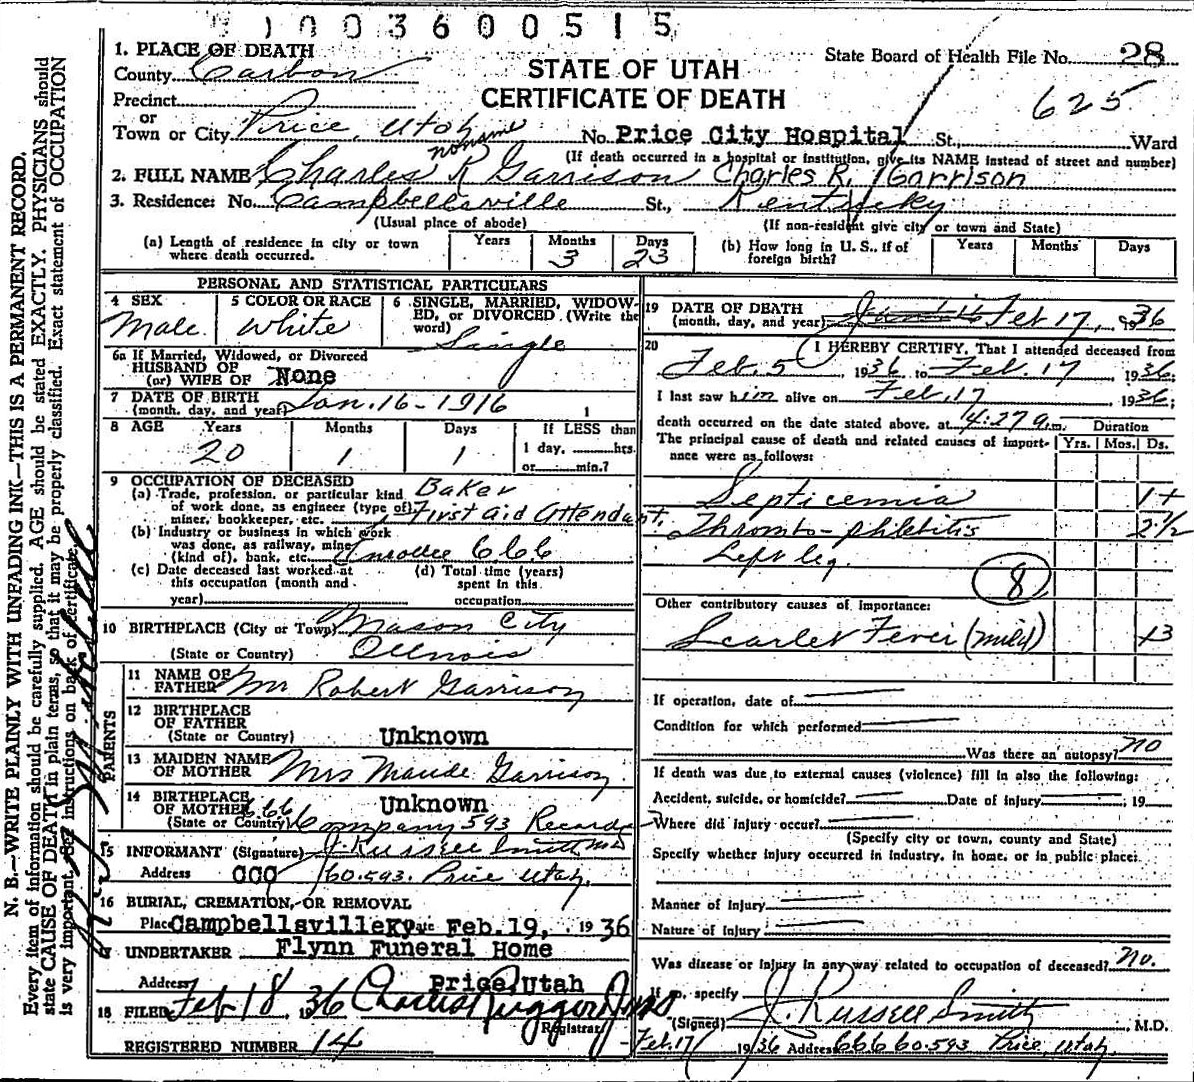 1003600515
State Board of Health File No. 28
STATE OF UTAH
CERTIFICATE OF DEATH
625
1. PLACE OF DEATH
County Carbon
Precinct
or
Town or City Price, Utah No. Price City Hospital St., Ward
(If death occurred in a hospital or institution, give its NAME instead of street and number)
no name
2. FULL NAME Charles R Garrison Charles R. Garrison
3. Residence: No. Campbellsville St., Kentucky
(Usual place of abode) (If non-resident give city or town and State)
(a) Length of residence in city or town where death occurred. Years Months 3 Days 23
(b) How long in U. S., if of foreign birth? Years Months Days
PERSONAL AND STATISTICAL PARTICULARS
4 SEX Male
5 COLOR OR RACE White
6 SINGLE, MARRIED, WIDOWED, or DIVORCED (Write the word) Single
6a If Married, Widowed, or Divorced
HUSBAND OF
(or) WIFE OF None
7 DATE OF BIRTH
(month, day, and year) Jan. 16 - 1916
8 AGE Years 20 Months 1 Days 1 If LESS than 1 day, hrs. or min.?
9 OCCUPATION OF DECEASED
(a) Trade, profession, or particular kind of work done, as engineer (type of) miner, bookkeeper, etc. Baker First aid Attendant,
(b) Industry or business in which work was done, as railway, mine (kind of), bank, etc. Enrollee CCC
(c) Date deceased last worked at this occupation (month and year)
(d) Total time (years) spent in this occupation
10 BIRTHPLACE (City or Town) Mason City
(State or Country) Illinois
PARENTS
11 NAME OF FATHER Mr Robert Garrison
12 BIRTHPLACE OF FATHER
(State or Country) Unknown
13 MAIDEN NAME OF MOTHER Mrs Maude Garrison
14 BIRTHPLACE OF MOTHER
(State or Country) Unknown
CCC Company 593 Records
15 INFORMANT (Signature) J. Russell Smith MD
Address CCC Co. 593. Price Utah.
16 BURIAL, CREMATION, OR REMOVAL
Place Campbellsville Ky Date Feb. 19, 1936
17 UNDERTAKER Flynn Funeral Home
Address Price, Utah
18 FILED Feb 18 1936
Registrar
REGISTERED NUMBER 14
19 DATE OF DEATH
(month, day, and year) Feb 17, 1936
20 I HEREBY CERTIFY, That I attended deceased from
Feb. 5 1936 to Feb. 17 1936.
I last saw him alive on Feb. 17 1936;
death occurred on the date stated above, at 4:27 a.m. Duration
The principal cause of death and related causes of importance were as follows: Yrs. Mos. Ds.
Septicemia 1+
Thrombo-phlebitis 2 1/2
Left leg.
8
Other contributory causes of importance:
Scarlet Fever (mild) 13
If operation, date of
Condition for which performed
Was there an autopsy? no
If death was due to external causes (violence) fill in also the following:
Accident, suicide, or homicide? Date of injury 19
Where did injury occur?
(Specify city or town, county and State)
Specify whether injury occurred in industry, in home, or in public place:
Manner of Injury
Nature of Injury
Was disease or injury in any way related to occupation of deceased? no.
If so, specify
(Signed) J. Russell Smith, M.D.
Feb. 17 1936 Address CCC Co. 593 Price, Utah.
N. B.—WRITE PLAINLY WITH UNFADING INK—THIS IS A PERMANENT RECORD.
Every item of information should be carefully supplied. AGE should be stated EXACTLY. PHYSICIANS should
state CAUSE OF DEATH in plain terms, so that it may be properly classified. Exact statement of OCCUPATION
is very important. See instructions on back of certificate.